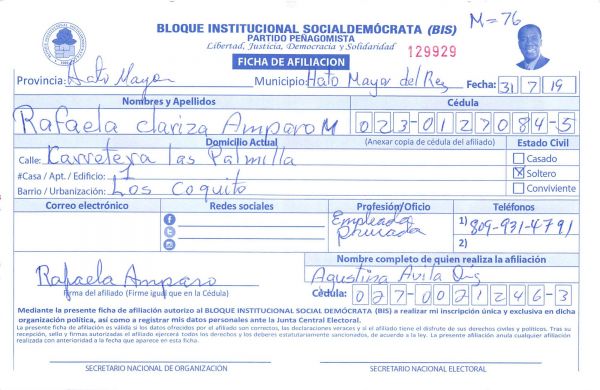 BLOQUE INSTITUCIONAL SOCIALDEMÓCRATA (BIS)
M=76
PARTIDO PEÑAGOMISTA
Libertad, Justicia, Democracia y Solidaridad
129929
FICHA DE AFILIACION
Provincia: Hato Mayor Municipio: Hato Mayor del Rey Fecha: 31 7 19
Nombres y Apellidos Cédula
Rafaela clariza Amparo M 023-0127084-5
Domicilio Actual (Anexar copia de cédula del afiliado) Estado Civil
Calle: Carretera las Palmilla Casado
#Casa / Apt. / Edificio: 1 X Soltero
Barrio / Urbanización: Los Coquito Conviviente
Correo electrónico Redes sociales Profesión/Oficio Teléfonos
Empleada 1) 809-931-4791
Privada 2)
Nombre completo de quien realiza la afiliación
Rafaela Amparo Agustina Avila
Firma del afiliado (Firme igual que en la Cédula) Cédula: 027-0021246-3
Mediante la presente ficha de afiliación autorizo al BLOQUE INSTITUCIONAL SOCIAL DEMÓCRATA (BIS) a realizar mi inscripción única y exclusiva en dicha
organización política, así como a registrar mis datos personales ante la Junta Central Electoral.
La presente ficha de afiliación es válida si los datos ofrecidos por el afiliado son correctos, las declaraciones veraces y si el afiliado tiene el disfrute de sus derechos civiles y políticos. Tras su
recepción, sello y firmas autorizadas el afiliado ejercerá todos los derechos y los deberes estatutariamente sancionados, de acuerdo a la ley. La presente afiliación anula cualquier afiliación
realizada con anterioridad a la fecha que aparece en esta ficha.
SECRETARIO NACIONAL DE ORGANIZACIÓN SECRETARIO NACIONAL ELECTORAL